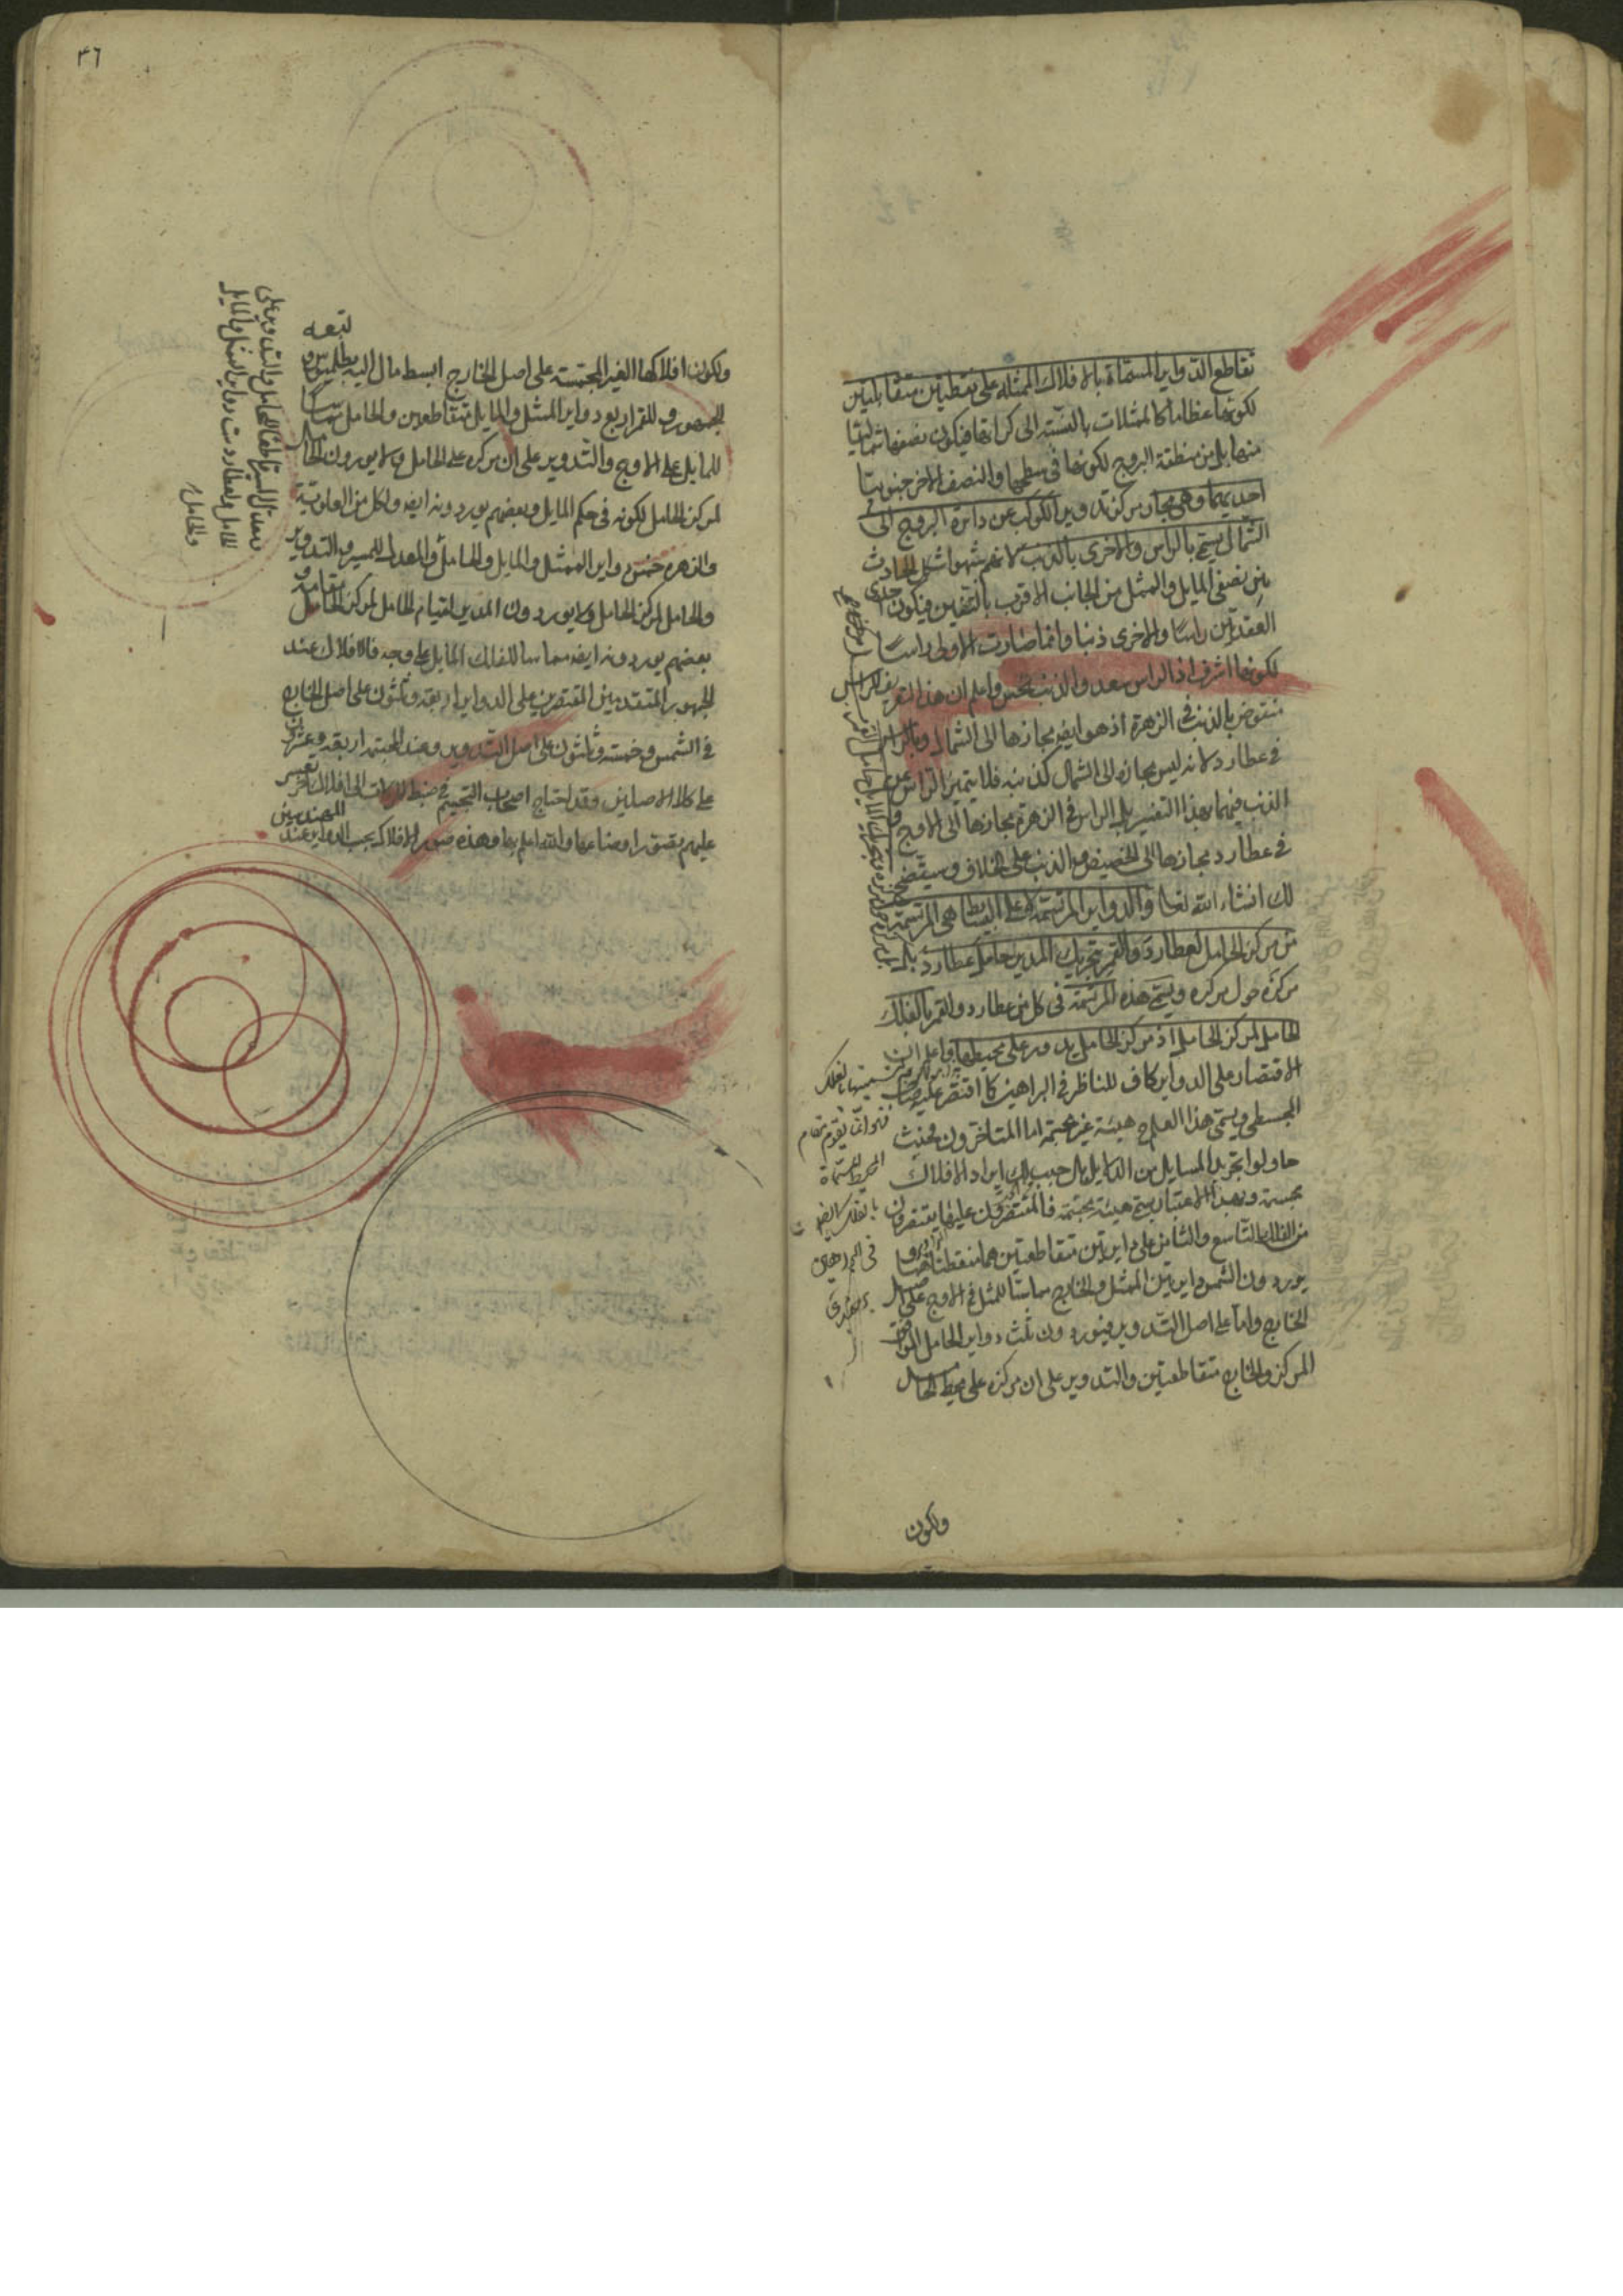 تقاطع الدواير المسماة بالافلاك الممثله على نقطتين متقابلتين
لكونها عظاما كالممثلات بالنسبة الى كراتها فيكون نصفها شماليا
منها بل من منطقة البروج لكونها فى سطحها والنصف الاخر جنوبيا
احديهما وهى مجاز مركز تدوير الكوكب عن دائرة البروج الى
الشمال يسمى بالراس والاخرى بالذنب لانهم شبهوا شكل الحادث
بين نصفى المايل والممثل من الجانب الاقرب بالتنين فيكون احدى
العقدتين راسا والاخرى ذنبا وانما صارت الاولى راسا
لكونها اشرف اذ الراس سعد والذنب نحس واعلم ان هذا التعريف للراس
منقوض بالذنب فى الزهرة اذ هو ايضا مجازها الى الشمال وبالراس
فى عطارد لانه ليس مجازه الى الشمال كذنبه فلا يتميز الراس عن
الذنب فيهما بهذا التفسير بل الراس فى الزهرة مجازها الى الاوج و
فى عطارد مجازها الى الحضيض والذنب على الخلاف وسيتضح
لك انشاء الله تعالى والدواير المرتسمة لا على البسايط هى المرتسمة
من مركز الحامل لعطارد والقمر بتحريك المدير حامل عطارد
مركزه حول مركزه ويسمى هذه المرتسمة فى كل من عطارد والقمر بالفلك
الحامل لمركز الحامل اذ مركز الحامل يدور على محيطها واعلم ان
الاقتصار على الدواير كاف للناظر فى البراهين كما اقتصر عليه صاحب
المجسطى ويسمى هذا العلم هيئة غير مجسمة اما المتاخرون فحيث
حاولوا تجريد المسايل من الدلايل مال حبب اليهم ايراد الافلاك
مجسمة وبهذا الاعتبار يسمى هيئة مجسمة فالمقتصرون عليها يقتصرون
من الفلك التاسع والثامن على دايرتين متقاطعتين هما منطقتاهما و
يوردون للشمس دايرتين الممثل والخارج مماسا للممثل فى الاوج على اصل
الخارج واما على اصل التدوير فيوردون ثلث دواير الحامل الموافق
المركز والخارج متقاطعتين والتدوير على ان مركزه على محيط الحامل
ولكون
٤٦
ولكون افلاكها الغير المجسمة على اصل الخارج ابسط مال اليه بطلميوس و
تبعه
الجمهور و للقمر اربع دواير الممثل والمايل متقاطعين والحامل مماسا
للمايل على الاوج والتدوير على ان مركزه على الحامل ولا يوردون الحامل
لمركز الحامل لكونه فى حكم المايل وبعضهم يوردونه ايضا ولكل من العلوية
والزهرة خمس دواير الممثل والمايل والحامل والمعدل للمسير والتدوير
والحامل لمركز الحامل ولا يوردون المدير لقيام الحامل لمركز الحامل مقامه و
بعضهم يوردونه ايضا مماسا للفلك المايل على وجه فالافلاك عند
الجمهور المتقدمين المقتصرين على الدواير اربعة وثلثون على اصل الخارج
فى الشمس وخمسة وثلثون على اصل التدوير وعند المجسمة اربعة وعشرون
على كلا الاصلين وقد احتاج اصحاب التجسيم فى ضبط الحركات الى افلاك اخر تعسر
عليهم تصور اوضاعها والله اعلم بها وهذه صور الافلاك بحسب الدواير عند
المهندسين
معدل المسير متقاطعا للحامل والتدوير على
الحامل ولعطارد ست دواير الممثل والمايل
والحامل